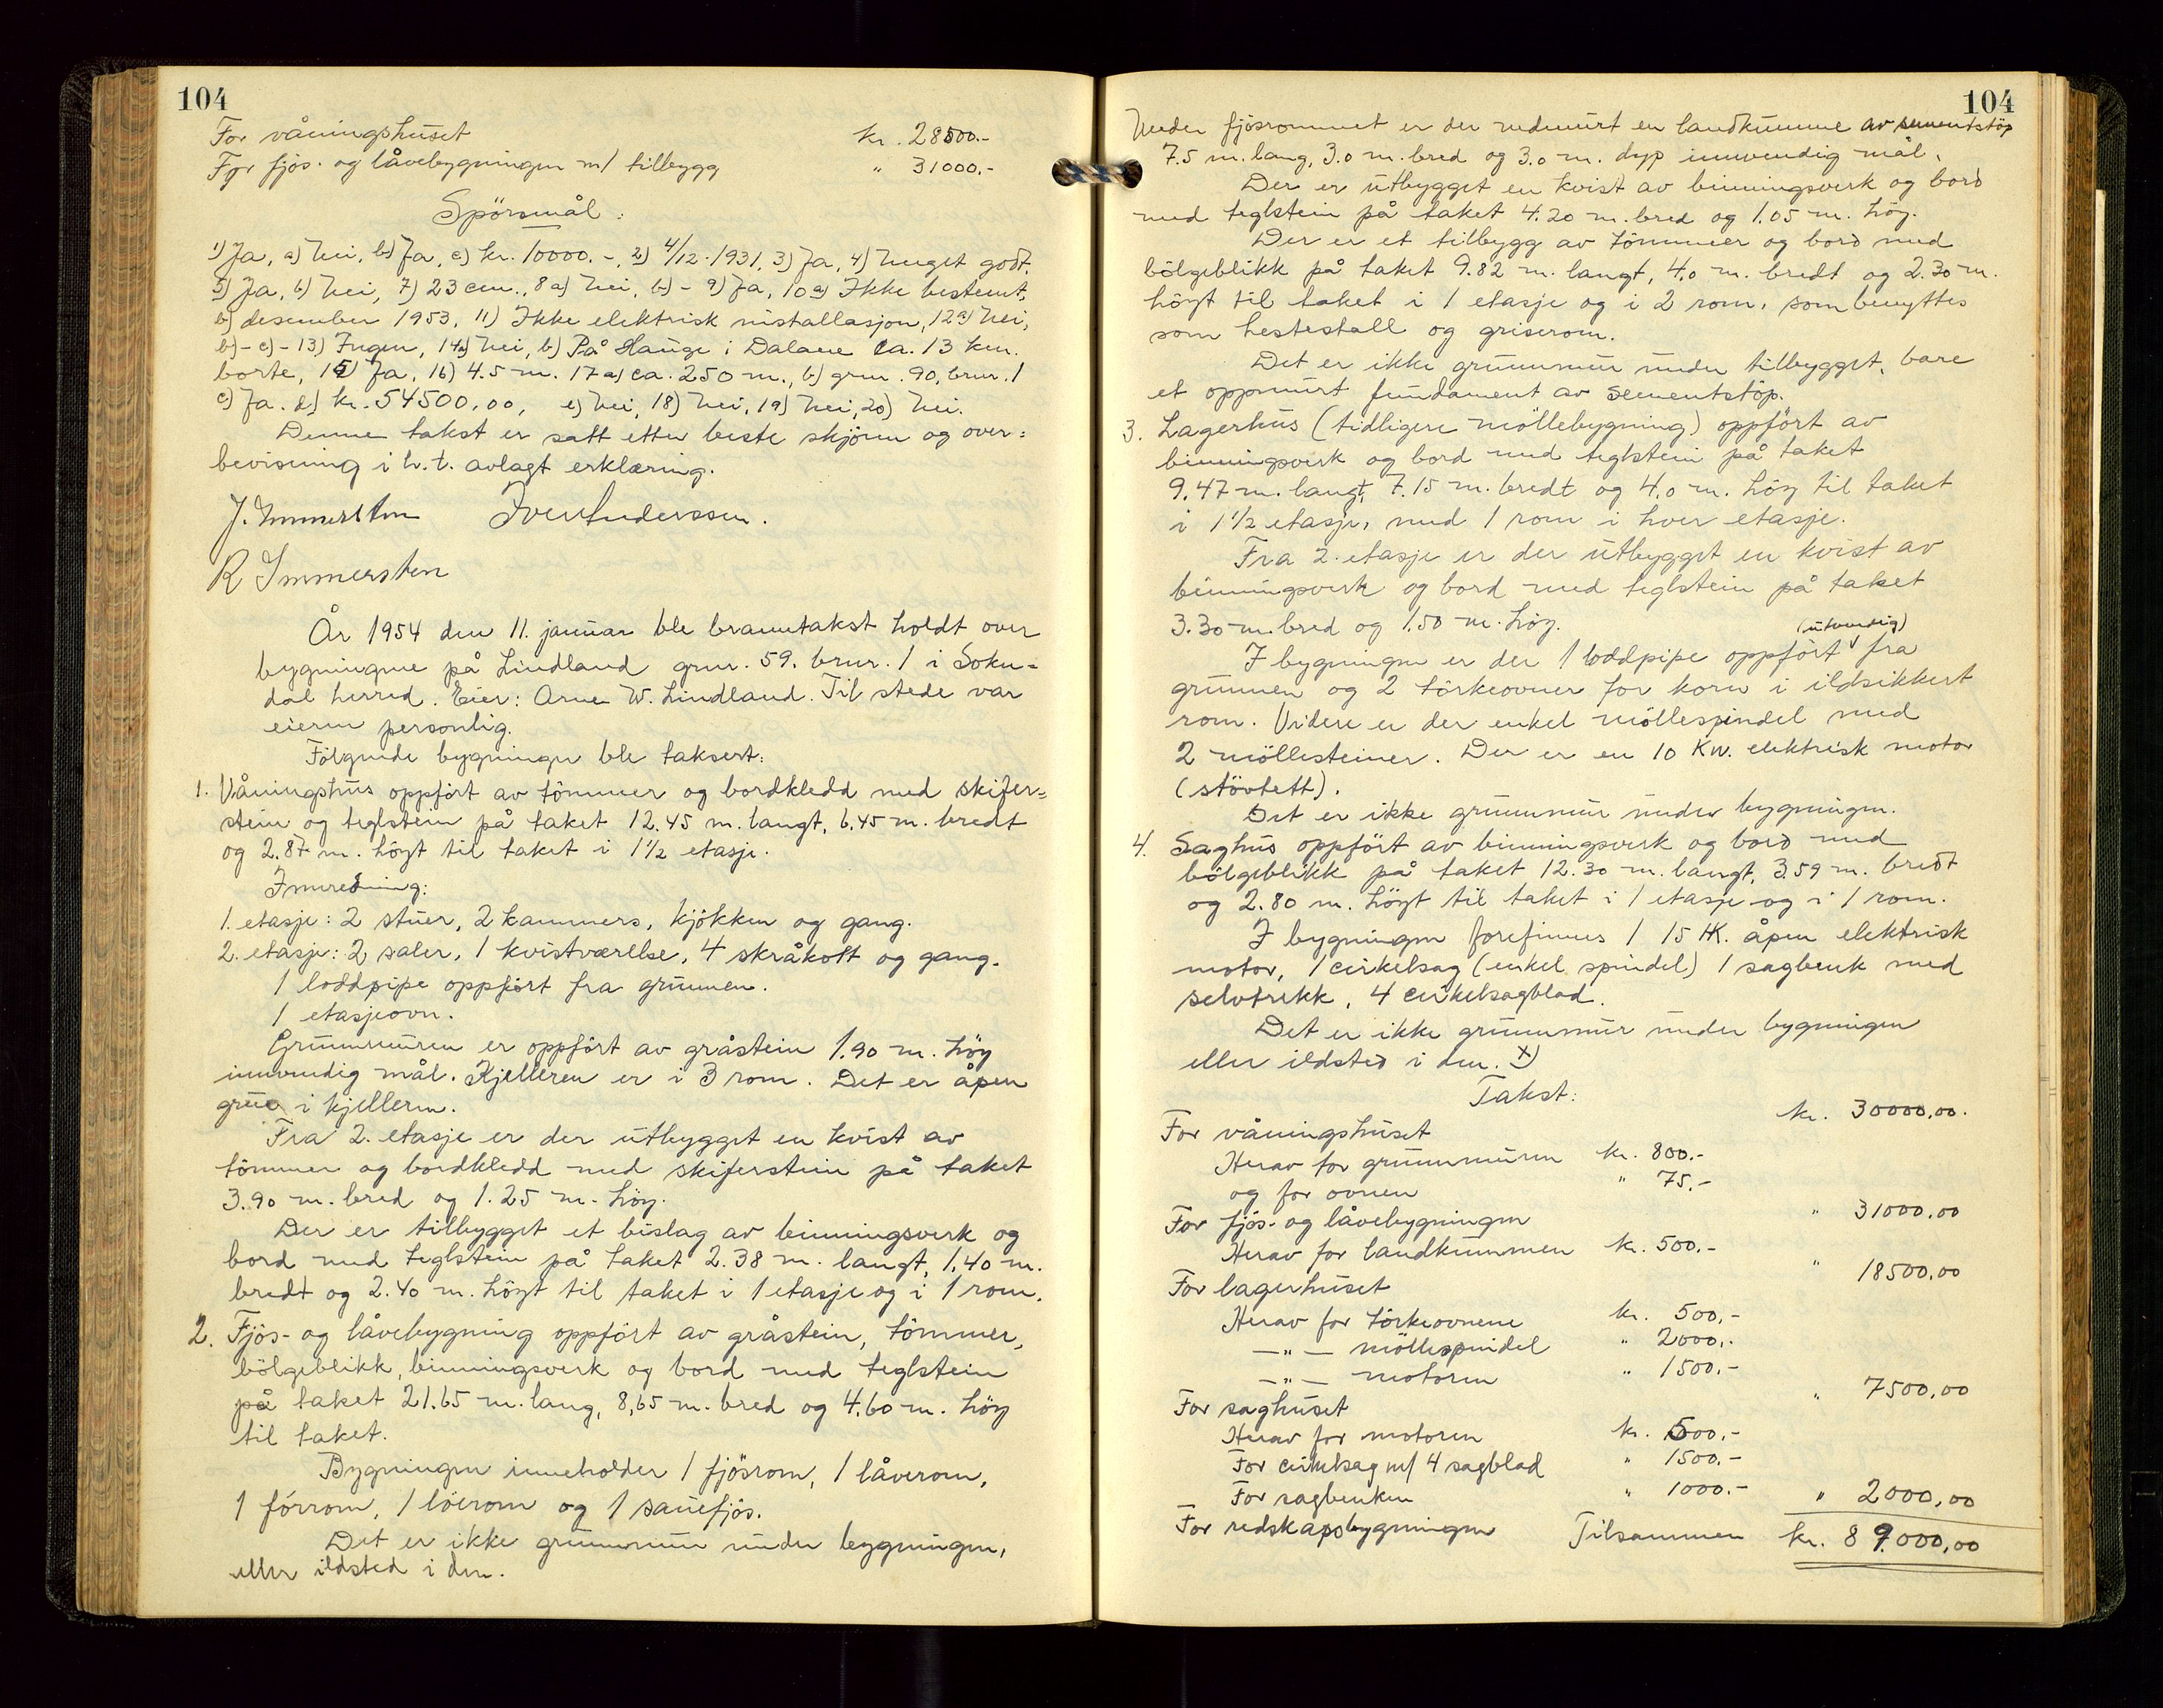 104
For våningshuset kr. 28500.-
For fjös- og låvebygningen m/ tilbygg " 31000.-
Spörsmål:
1) Ja, a) Nei, b) Ja, c) kr. 10000.-, 2) 4/12-1931, 3) Ja, 4) Meget godt.
5) Ja, 6) Nei, 7) 23 cm., 8 a) Nei, b) - 9) Ja, 10 a) Ikke bestemt,
b) desember 1953, 11) Ikke elektrisk installasjon, 12 a) Nei,
b) - c) - 13) Ingen, 14 a) Nei, b) På Hauge i Dalane ca. 13 km.
borte, 15) Ja, 16) 4.5 m. 17 a) ca. 250 m., b) gnr. 90, bnr. 1
c) Ja. d) kr. 54500,00, e) Nei, 18) Nei, 19) Nei, 20) Nei.
Denne takst er satt etter beste skjönn og over=
bevisning i h.t. avlagt erklæring.
J. Immersten Iver Anderssen.
R Immersten
År 1954 den 11. januar ble branntakst holdt over
bygningene på Lindland gnr. 59. bnr. 1 i Sokn=
dal herred. Eier: Arne W. Lindland. Til stede var
eieren personlig.
Fölgende bygninger ble taksert:
1. Våningshus oppfört av tömmer og bordkledd med skifer=
stein og teglstein på taket 12.45 m. langt, 6.45 m. bredt
og 2.87 m. höyt til taket i 1 1/2 etasje.
Innredning:
1. etasje: 2 stuer, 2 kammers, kjökken og gang.
2. etasje: 2 saler, 1 kvistværelse, 4 skråkott og gang.
1 loddpipe oppfört fra grunnen.
1 etasjeovn.
Grunnmuren er oppfört av gråstein 1.90 m. höy
innvendig mål. Kjelleren er i 3 rom. Det er åpen
grue i kjelleren.
Fra 2. etasje er der utbygget en kvist av
tömmer og bordkledd med skiferstein på taket
3.90 m. bred og 1.25 m. höy.
Der er tilbygget et bislag av binningsverk og
bord med teglstein på taket 2.38 m. langt, 1.40 m.
bredt og 2.40 m. höyt til taket i 1 etasje og i 1 rom.
2. Fjös- og låvebygning oppfört av gråstein, tömmer,
bölgeblikk, binningsverk og bord med teglstein
på taket 21.65 m. lang, 8,65 m. bred og 4.60 m. höy
til taket.
Bygningen inneholder 1 fjösrom, 1 låverom,
1 fórrom, 1 löerom og 1 sauefjös.
Det er ikke grunnmur under bygningen,
eller ildsted i den.
104
Under fjösrommet er der nedmurt en landkumme av sementstöp
7.5 m. lang, 3.0 m. bred og 3.0 m. dyp innvendig mål.
Der er utbygget en kvist av binningsverk og bord
med teglstein på taket 4.20 m. bred og 1.05 m. höy.
Der er et tilbygg av tömmer og bord med
bölgeblikk på taket 9.82 m. langt, 4.0 m. bredt og 2.30 m.
höyt til taket i 1 etasje og i 2 rom, som benyttes
som hestestall og griserom.
Det er ikke grunnmur under tilbygget, bare
et oppmurt fundament av sementstöp.
3. Lagerhus (tidligere möllebygning) oppfört av
binningsverk og bord med teglstein på taket
9.47 m. langt, 7.15 m. bredt og 4.0 m. höy til taket
i 1 1/2 etasje, med 1 rom i hver etasje.
Fra 2. etasje er der utbygget en kvist av
binningsverk og bord med teglstein på taket
3.30 m. bred og 1.50 m. höy.
(utvendig)
I bygningen er der 1 loddpipe oppfört fra
grunnen og 2 törkeovner for korn i ildsikkert
rom. Videre er der enkel möllespindel med
2 möllesteiner. Der er en 10 Kw. elektrisk motor
(stövtett).
Det er ikke grunnmur under bygningen.
4. Saghus oppfört av binningsverk og bord med
bölgeblikk på taket 12.30 m. langt, 3.59 m. bredt
og 2.80 m. höyt til taket i 1 etasje og i 1 rom.
I bygningen forefinnes 1 15 HK. åpen elektrisk
motor, 1 cirkelsag (enkel spindel) 1 sagbenk med
selvtrekk, 4 cirkelsagblad.
Det er ikke grunnmur under bygningen
eller ildsted i den. x)
Takst:
For våningshuset kr. 30000,00.
Herav for grunnmuren kr. 800.-
og for ovnen " 75.-
For fjös- og låvebygningen " 31000,00
Herav for landkummen kr. 500.-
For lagerhuset " 18500,00
Herav for törkeovnene kr. 500,-
-"- möllespindel " 2000,-
-"- motoren " 1500.-
For saghuset " 7500,00
Herav for motoren kr. 500.-
For cirkelsag m/ 4 sagblad " 1500.-
For sagbenken " 1000.-
For redskapsbygningen " 2000,00
Tilsammen kr. 89.000,00